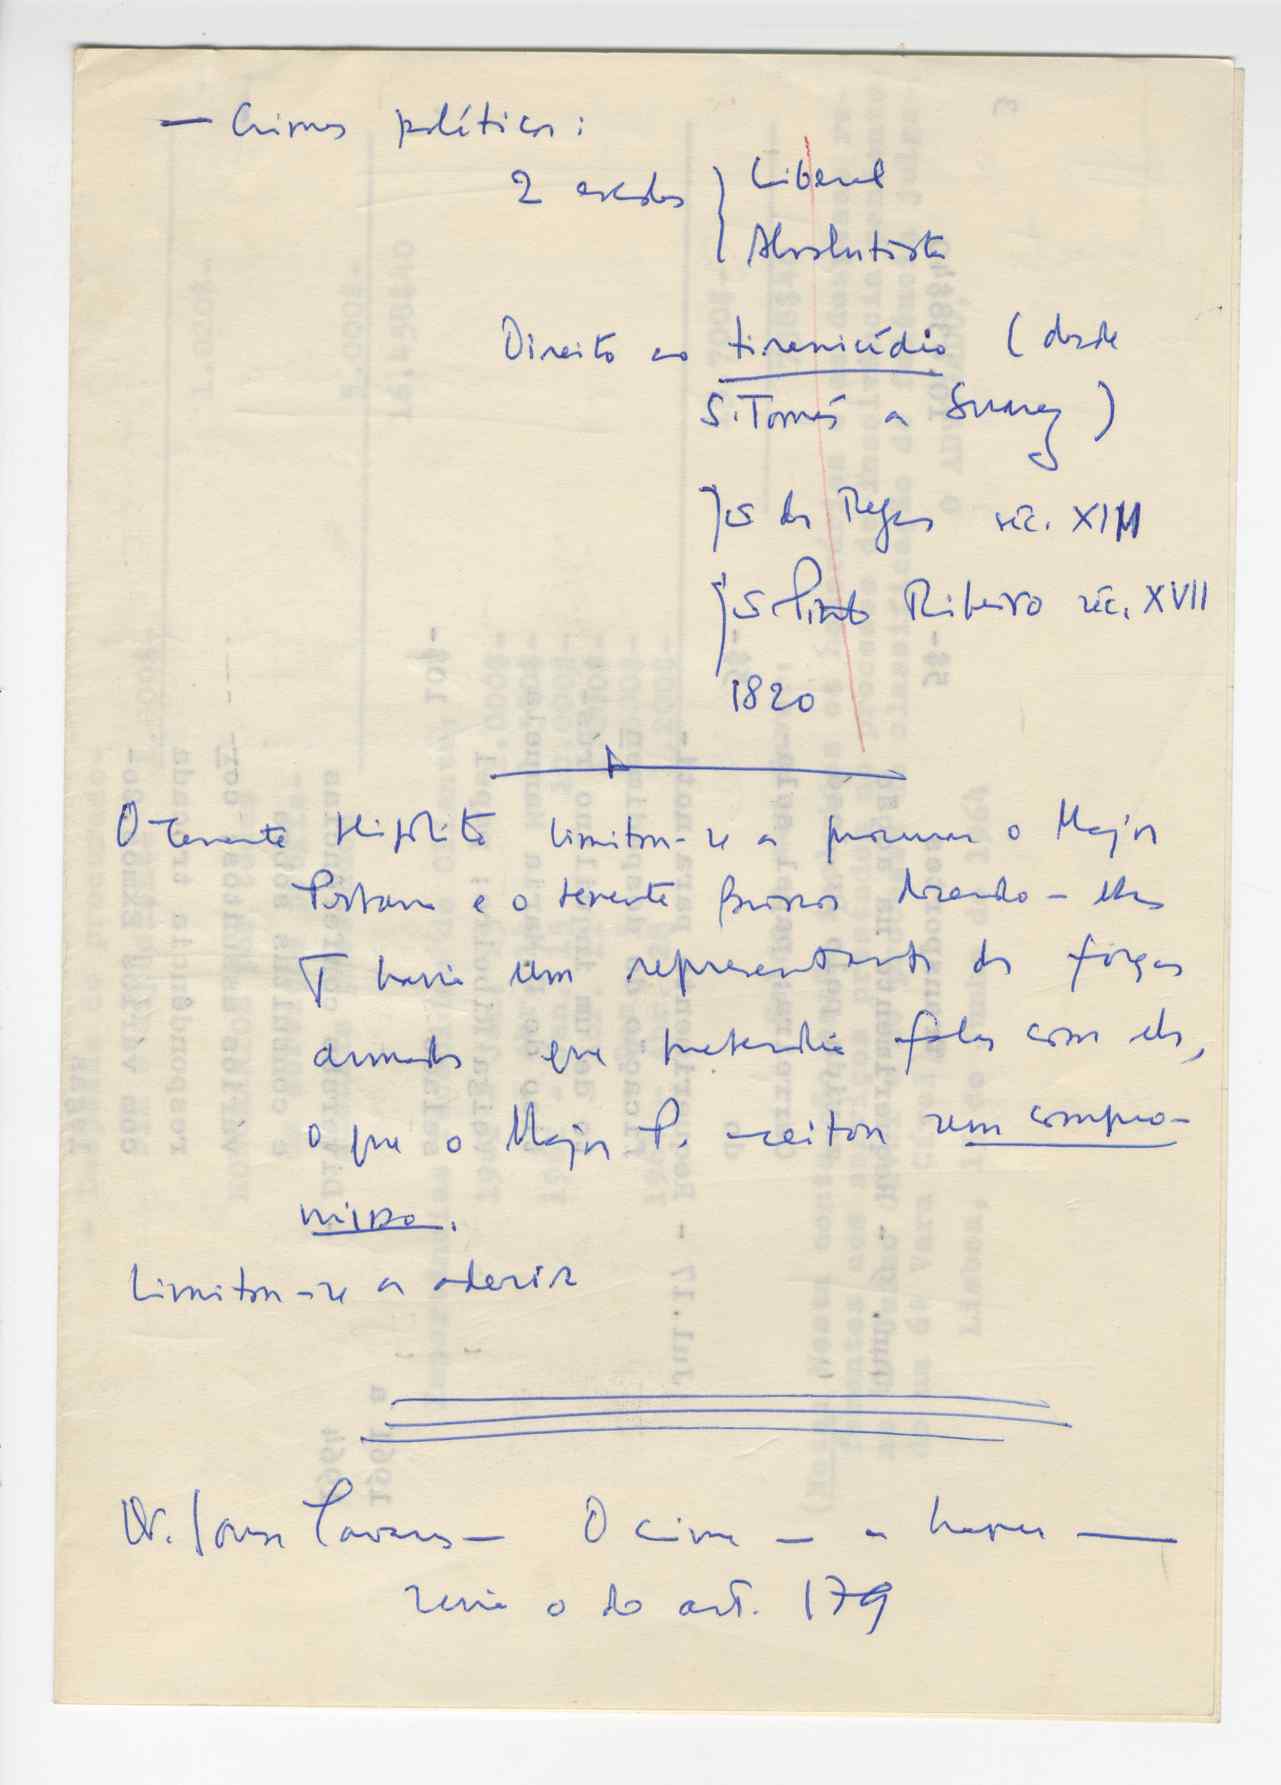 — Crimes políticos:
2 escolas } Liberal
Absolutista
Direito ao tiranicídio (desde
S. Tomás a Suarez)
J S das Regras séc. XIII
J S Pinto Ribeiro séc. XVII
1820
O Tenente Hipólito limitou-se a procurar o Major
Pestana e o tenente dizendo-lhes
q havia um representante das forças
armadas que pretendia falar com eles,
o que o Major P. aceitou sem compro-
misso.
Limitou-se a aderir
Dr. Sousa Tavares — O crime — a haver —
seria o do art. 179